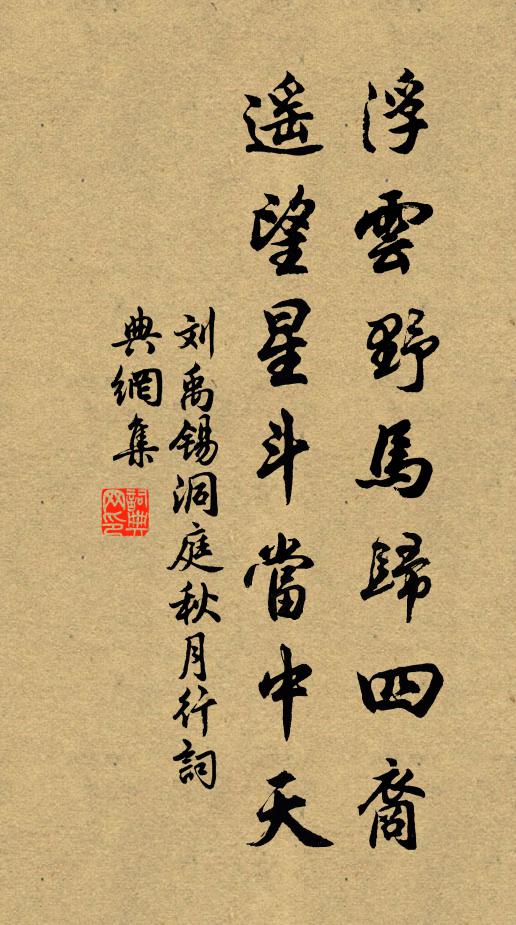 浮雲野馬歸四裔
遥望星斗當中天
刘禹錫洞庭秋月行詞
典網集
詞典网印